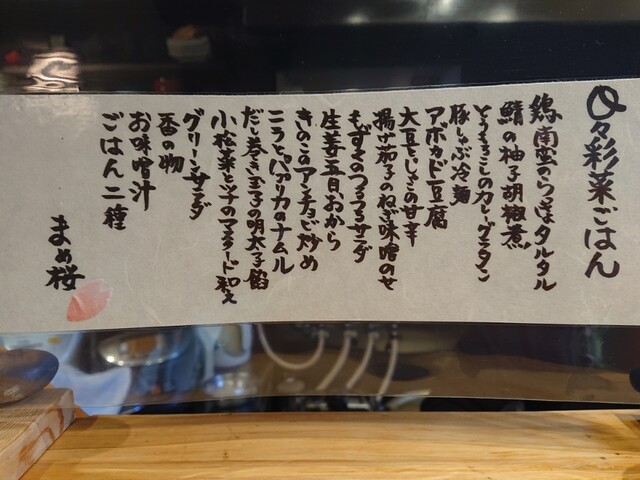 日々彩菜ごはん
鶏南蛮のらっきょタルタル
鯖の柚子胡椒煮
とうもろこしのカレーグラタン
豚しゃぶ冷麺
アボカド豆腐
大豆とじゃこの甘辛
揚げ茄子のねぎ味噌のせ
もずくのつるつるサラダ
生姜五目おから
きのこのアンチョビ炒め
ニラとパプリカのナムル
だし巻き玉子の明太子餡
小松菜とツナのマスタード和え
グリーンサラダ
香の物
お味噌汁
ごはん二種
まめ桜